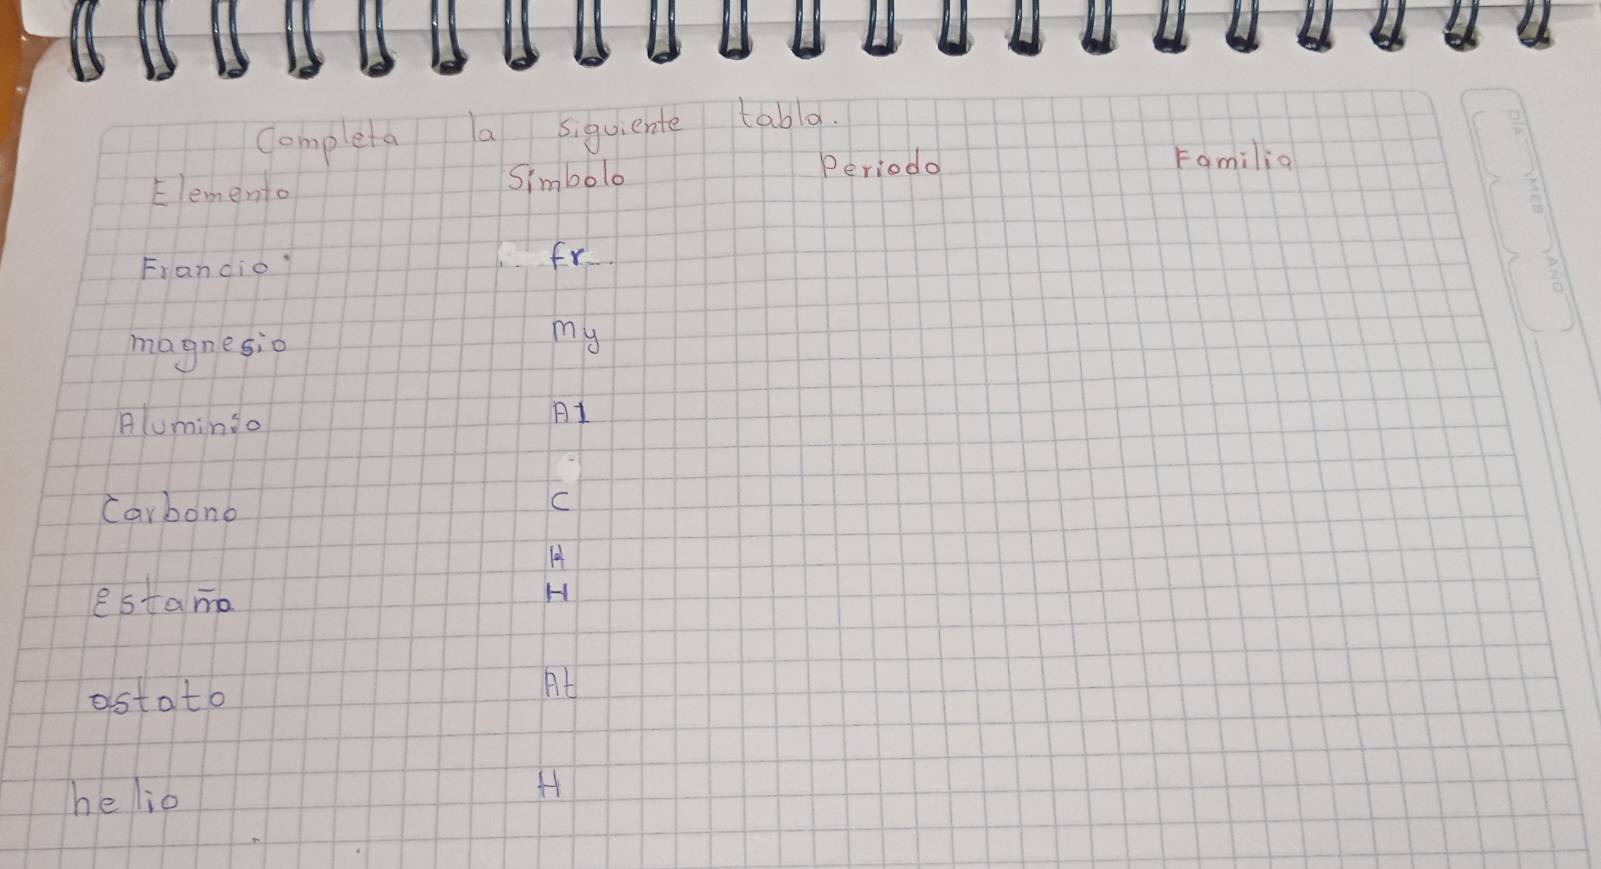 Completa la siguiente tabla.
Elemento Simbolo Periodo Familia
Francio Fr
magnesio my
Aluminio Al
Carbono C
H
Estaño H
astato At
helio H
DIA MES AÑO